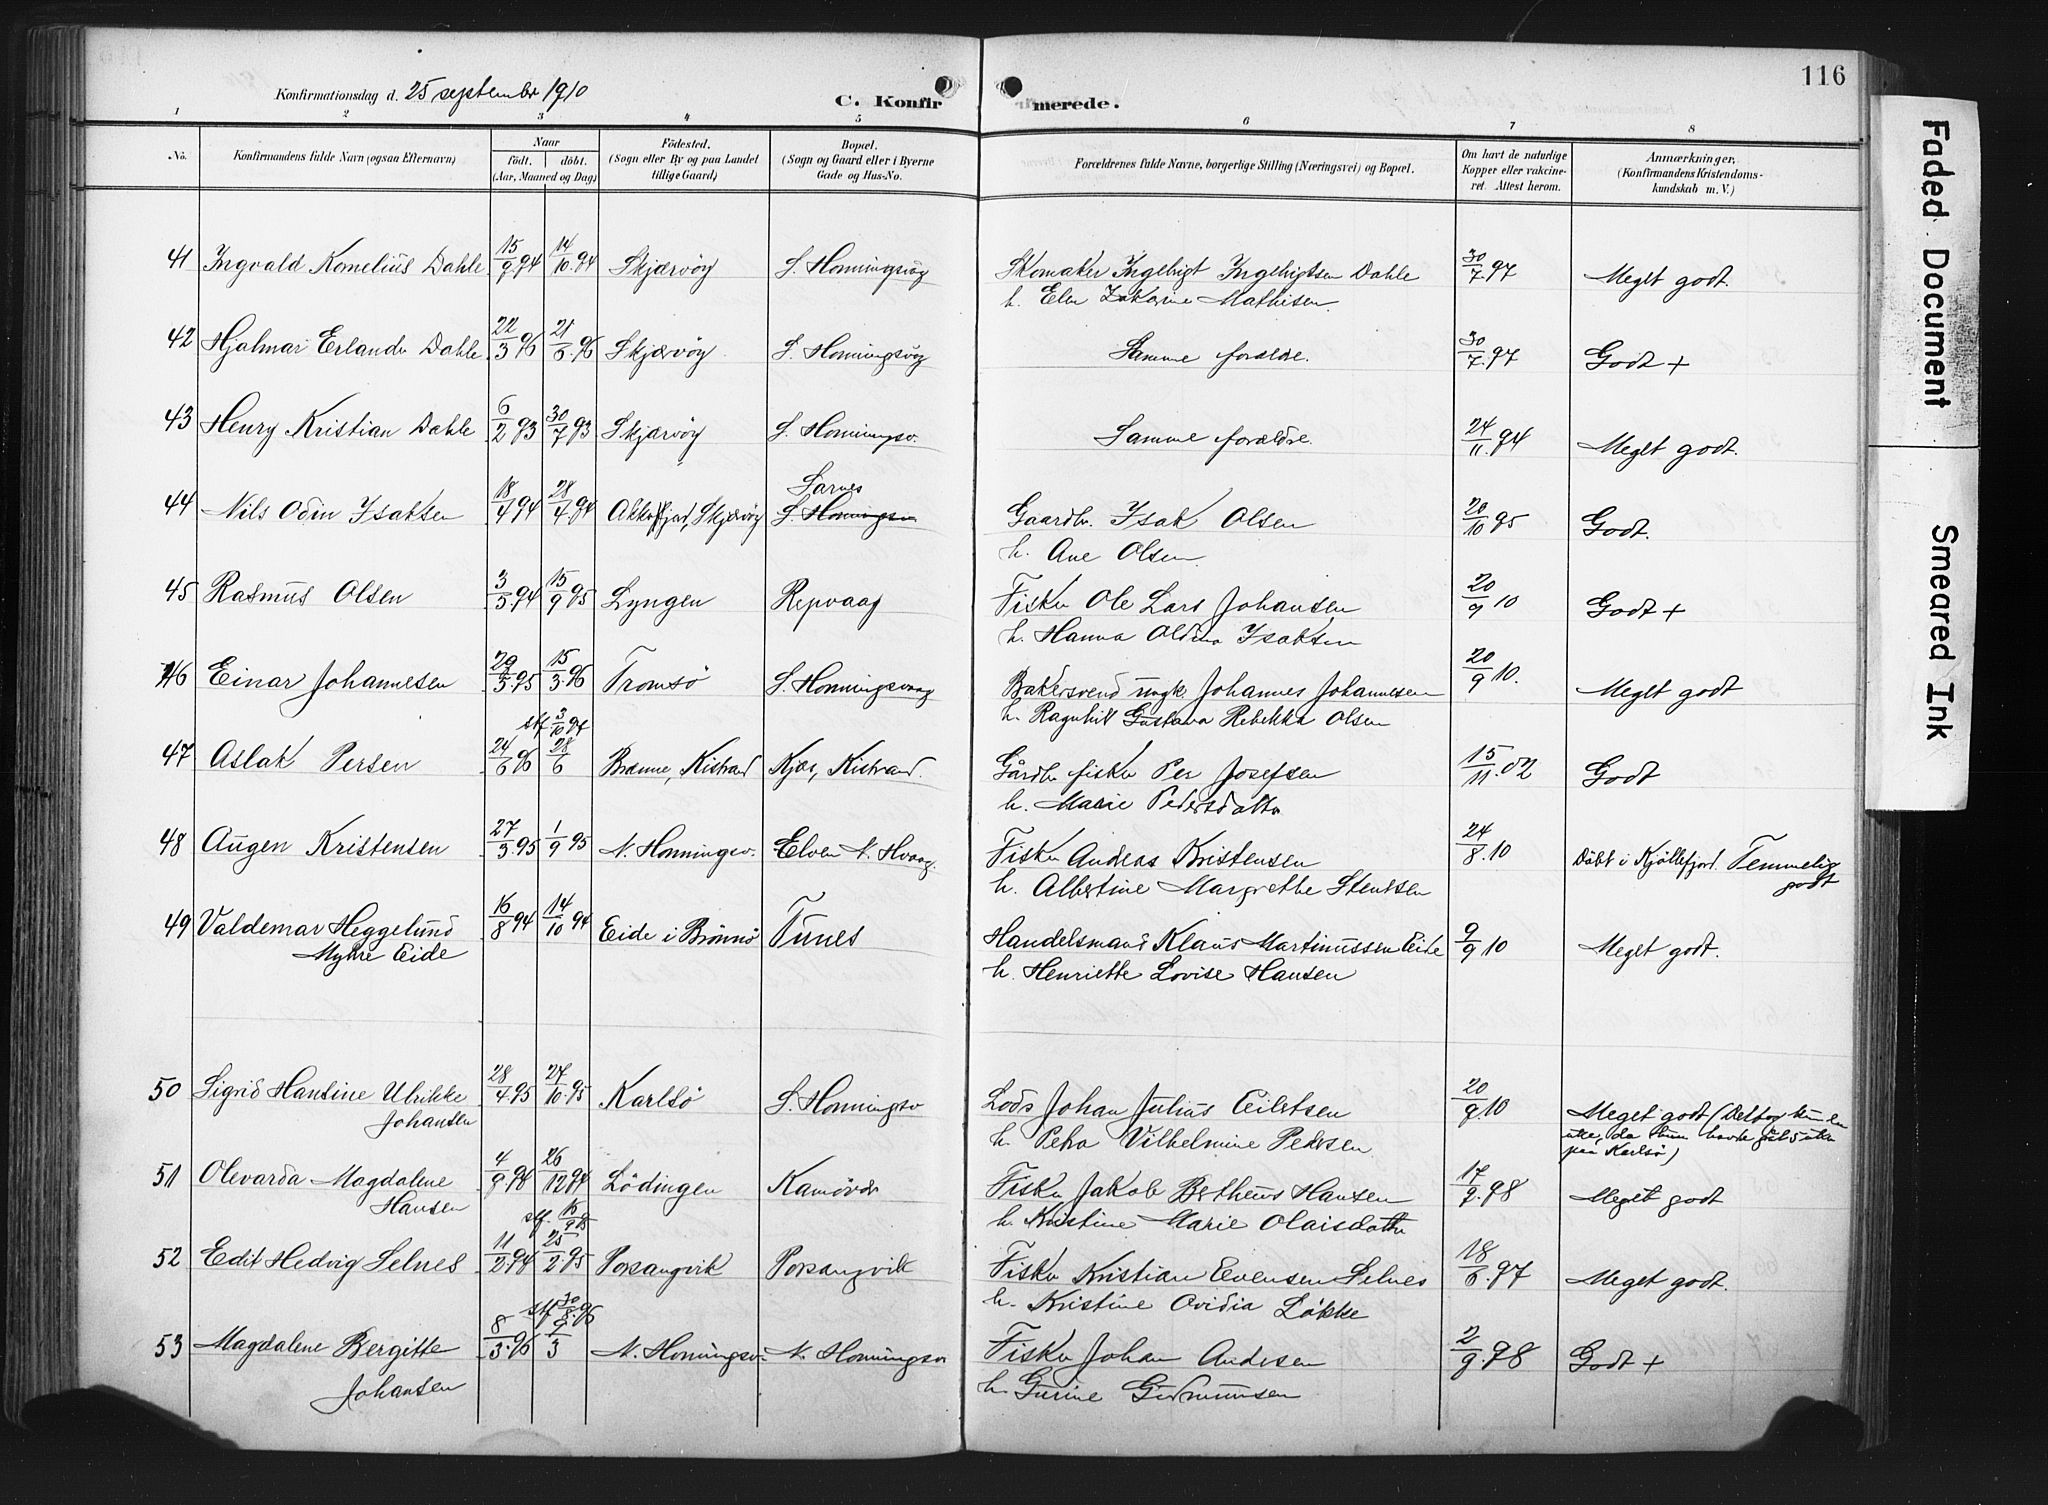 116
Konfirmationsdag d. 25 september 1910
C. Konfirmerede.
1 2 3 4 5 6 7 8
No. Konfirmandens fulde Navn (ogsaa Efternavn) Naar født. døbt. (Aar, Maaned og Dag) Fødested. (Sogn eller By og paa Landet tillige Gaard) Bopæl. (Sogn og Gaard eller i Byerne Gade og Hus-No. Forældrenes fulde Navne, borgerlige Stilling (Næringsvei) og Bopæl. Om havt de naturlige Kopper eller vakcineret. Attest herom. Anmærkninger, (Konfirmandens Kristendomskundskab m. V.)
41 Ingvald Kornelius Dahle 15/9.94 14/10.94 Skjærvöy S. Honningsvög Skomaker Ingebrigt Ingebrigtsen Dahle 30/7.97 Meget godt.
h. Elen Zakarine Mathisen.
42 Hjalmar Erlandu Dahle 22/3.96 21/6.96 Skjærvöy S. Honningsvög Samme forældre. 30/7.97 Godt +
43 Henry Kristian Dahle 6/2.93 30/7.93 Skjærvöy S. Honningsv. Samme forældre. 24/11.94 Meget godt.
Sarnes
44 Nils Odin Isaksen 18/4.94 28/4.94 Akkofjord, Skjærvöy S. Honningsv. Gaardbr. Isak Olsen 20/10.95 Godt.
h. Ane Olsen.
45 Rasmus Olsen 3/5.94 15/9.95 Lyngen Repvaag Fisker Ole Lars Johansen 20/9 10 Godt +
h. Hanna Oldina Isaksen
46 Einar Johannesen 29/3.95 15/3.96 Tromsö S. Honningsvaag Bakersvend ungk. Johannes Johannesen 20/9 10. Meget godt
h. Ragnhill Gustava Rebekka Olsen
stf. 3/10 97
47 Aslak Persen 24/6 96 28/6 Brænne, Kistrand Kjæs, Kistrand. Gårdbr fisker Per Josefsen 15/11.02 Godt
h. Marie Pedersdatter
48 Augen Kristensen 27/3.95 1/9 95 N. Honningsv. Elven N. Hvaag. Fisker Andreas Kristensen 24/8.10 Döbt i Kjöllefjord. Temmelig godt
h. Albertine Margrethe Stensen
49 Valdemar Heggelund 16/8 94 14/10 94 Eide i Brönnö Tunes Handelsmand Klaus Martinussen Eide 9/9 10 Meget godt.
Myhre Eide h. Henriette Lovise Hansen
50 Sigrid Hansine Ulrikke 28/4.95 27/10.95 Karlsö S. Honningsv Lods Johan Julius Eilertsen 20/9.10 Meget godt
Johansen h. Petra Vilhelmine Pedersen
paa Karlsö)
51 Olevarda Magdalene 4/9.94 26/12 94 Lödingen Kamövær Fisker Jakob Betheus Hansen 17/9.98 Meget godt
Hansen h. Kristine Marie Olaisdatter
stf. 16/9 95
52 Edit Hedvig Selnes 11/2.94 25/2.95 Porsangvik Porsangvik Fisker Kristian Evensen Selnes 18/6.97 Meget godt.
h. Kristine Ovidia Løkke
stf 30/8.96
53 Magdalene Bergitte 8/3.96 9/3 N. Honningsv. N. Honningsv Fisker Johan Andersen 2/9.98 Godt +
Johansen h. Gurine Gudmundsen
Faded Document
Smeared Ink